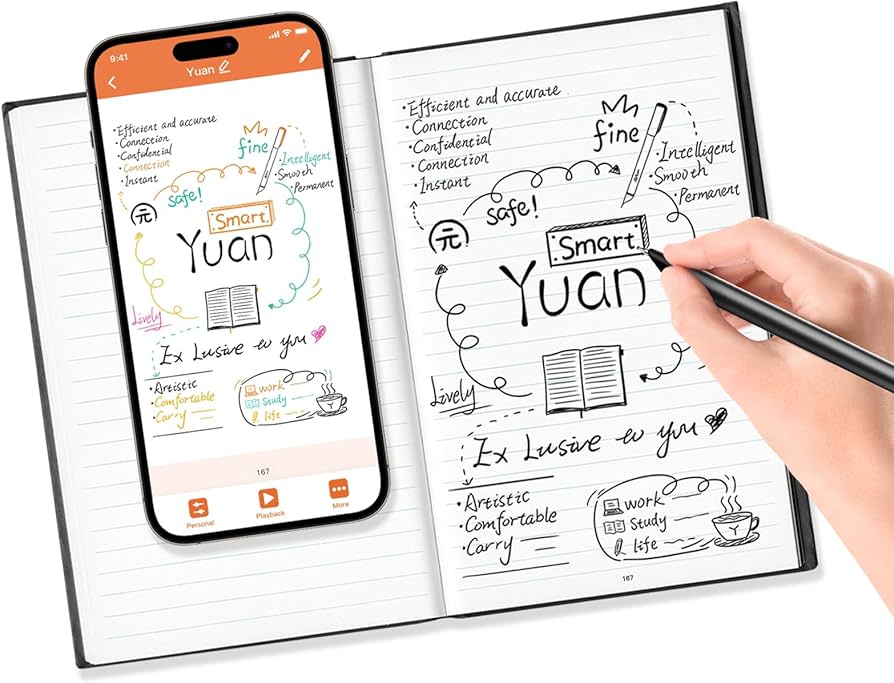 9:41
Yuan
•Efficient and accurate
•Connection
•Confidential
•Connection
•Instant
fine
•Intelligent
•Smooth
•Permanent
safe!
元
Smart
Yuan
Lively
Ex Lusive to you
•Artistic
•Comfortable
•Carry
work
study
life
Y
167
Personal
Playback
More
•Efficient and accurate
•Connection
•Confidential
•Connection
•Instant
fine
•Intelligent
•Smooth
•Permanent
safe!
元
Smart
Yuan
Lively
Ex Lusive to you
•Artistic
•Comfortable
•Carry
work
study
life
Y
167